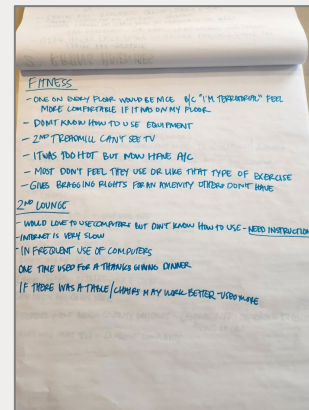 FITNESS
- ONE ON EVERY FLOOR WOULD BE NICE B/C "I'M TERRITORIAL" FEEL
MORE COMFORTABLE IF IT WAS ON MY FLOOR
- DON'T KNOW HOW TO USE EQUIPMENT
- 2ND TREADMILL CAN'T SEE TV
- IT WAS TOO HOT BUT NOW HAVE A/C
- MOST DON'T FEEL THEY USE OR LIKE THAT TYPE OF EXERCISE
- GIVES BRAGGING RIGHTS FOR AN AMENITY OTHERS DON'T HAVE
2ND LOUNGE
- WOULD LOVE TO USE COMPUTERS BUT DON'T KNOW HOW TO USE - NEED INSTRUCTION
- INTERNET IS VERY SLOW
- IN FREQUENT USE OF COMPUTERS
ONE TIME USED FOR A THANKSGIVING DINNER
IF THERE WAS A TABLE/CHAIRS MAY WORK BETTER - USED MORE